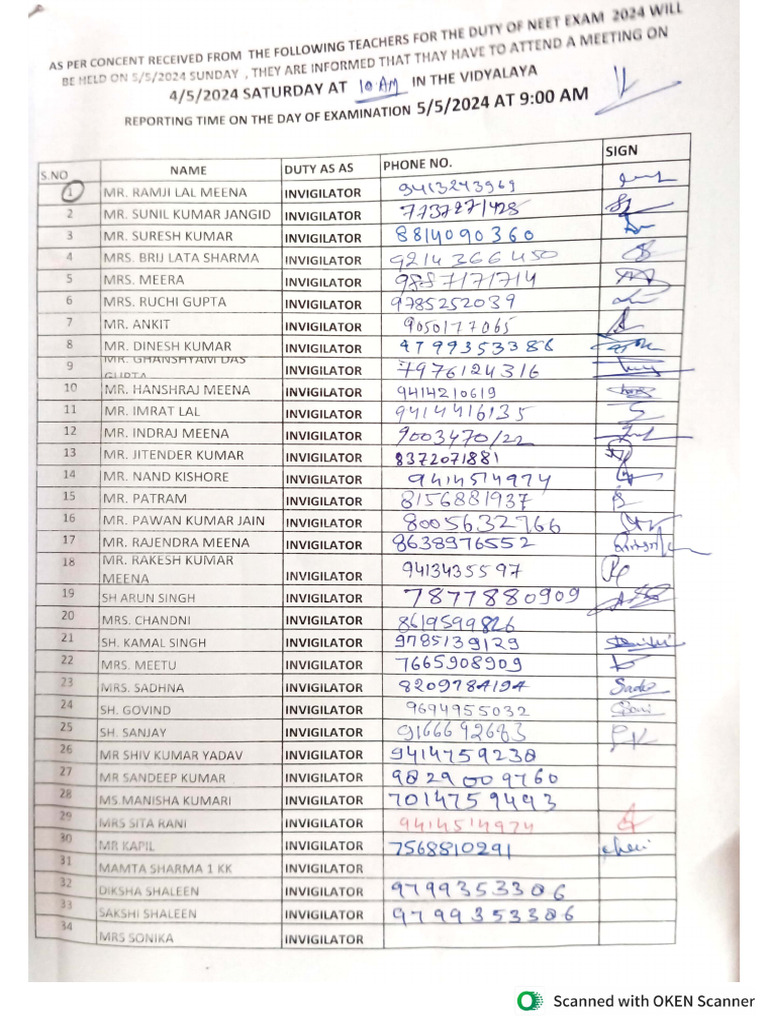 AS PER CONCENT RECEIVED FROM THE FOLLOWING TEACHERS FOR THE DUTY OF NEET EXAM 2024 WILL
BE HELD ON 5/5/2024 SUNDAY , THEY ARE INFORMED THAT THAY HAVE TO ATTEND A MEETING ON
4/5/2024 SATURDAY AT 10 AM IN THE VIDYALAYA
REPORTING TIME ON THE DAY OF EXAMINATION 5/5/2024 AT 9:00 AM
S.NO NAME DUTY AS AS PHONE NO. SIGN
1 MR. RAMJI LAL MEENA INVIGILATOR 9413243969
2 MR. SUNIL KUMAR JANGID INVIGILATOR 7737271428
3 MR. SURESH KUMAR INVIGILATOR 8814090360
4 MRS. BRIJ LATA SHARMA INVIGILATOR 9214366450
5 MRS. MEERA INVIGILATOR 9887171714
6 MRS. RUCHI GUPTA INVIGILATOR 9785252039
7 MR. ANKIT INVIGILATOR 9050177065
8 MR. DINESH KUMAR INVIGILATOR 9799353386
9 MR. GHANSHYAM DAS GUPTA INVIGILATOR 7976124316
10 MR. HANSHRAJ MEENA INVIGILATOR 9414210619
11 MR. IMRAT LAL INVIGILATOR 9414416135
12 MR. INDRAJ MEENA INVIGILATOR 9003470122
13 MR. JITENDER KUMAR INVIGILATOR 8372071881
14 MR. NAND KISHORE INVIGILATOR 9414514974
15 MR. PATRAM INVIGILATOR 8156881937
16 MR. PAWAN KUMAR JAIN INVIGILATOR 8005632766
17 MR. RAJENDRA MEENA INVIGILATOR 8638976552
18 MR. RAKESH KUMAR MEENA INVIGILATOR 9413435597
19 SH ARUN SINGH INVIGILATOR 7877880909
20 MRS. CHANDNI INVIGILATOR 8619599826
21 SH. KAMAL SINGH INVIGILATOR 9785139129
22 MRS. MEETU INVIGILATOR 7665908909
23 MRS. SADHNA INVIGILATOR 8209784194
24 SH. GOVIND INVIGILATOR 9694955032
25 SH. SANJAY INVIGILATOR 9166692683
26 MR SHIV KUMAR YADAV INVIGILATOR 9414759238
27 MR SANDEEP KUMAR INVIGILATOR 9829009760
28 MS.MANISHA KUMARI INVIGILATOR 7014759493
29 MRS SITA RANI INVIGILATOR 9414514974
30 MR KAPIL INVIGILATOR 7568810291
31 MAMTA SHARMA 1 KK INVIGILATOR
32 DIKSHA SHALEEN INVIGILATOR 9799353386
33 SAKSHI SHALEEN INVIGILATOR 9799353386
34 MRS SONIKA INVIGILATOR
Scanned with OKEN Scanner